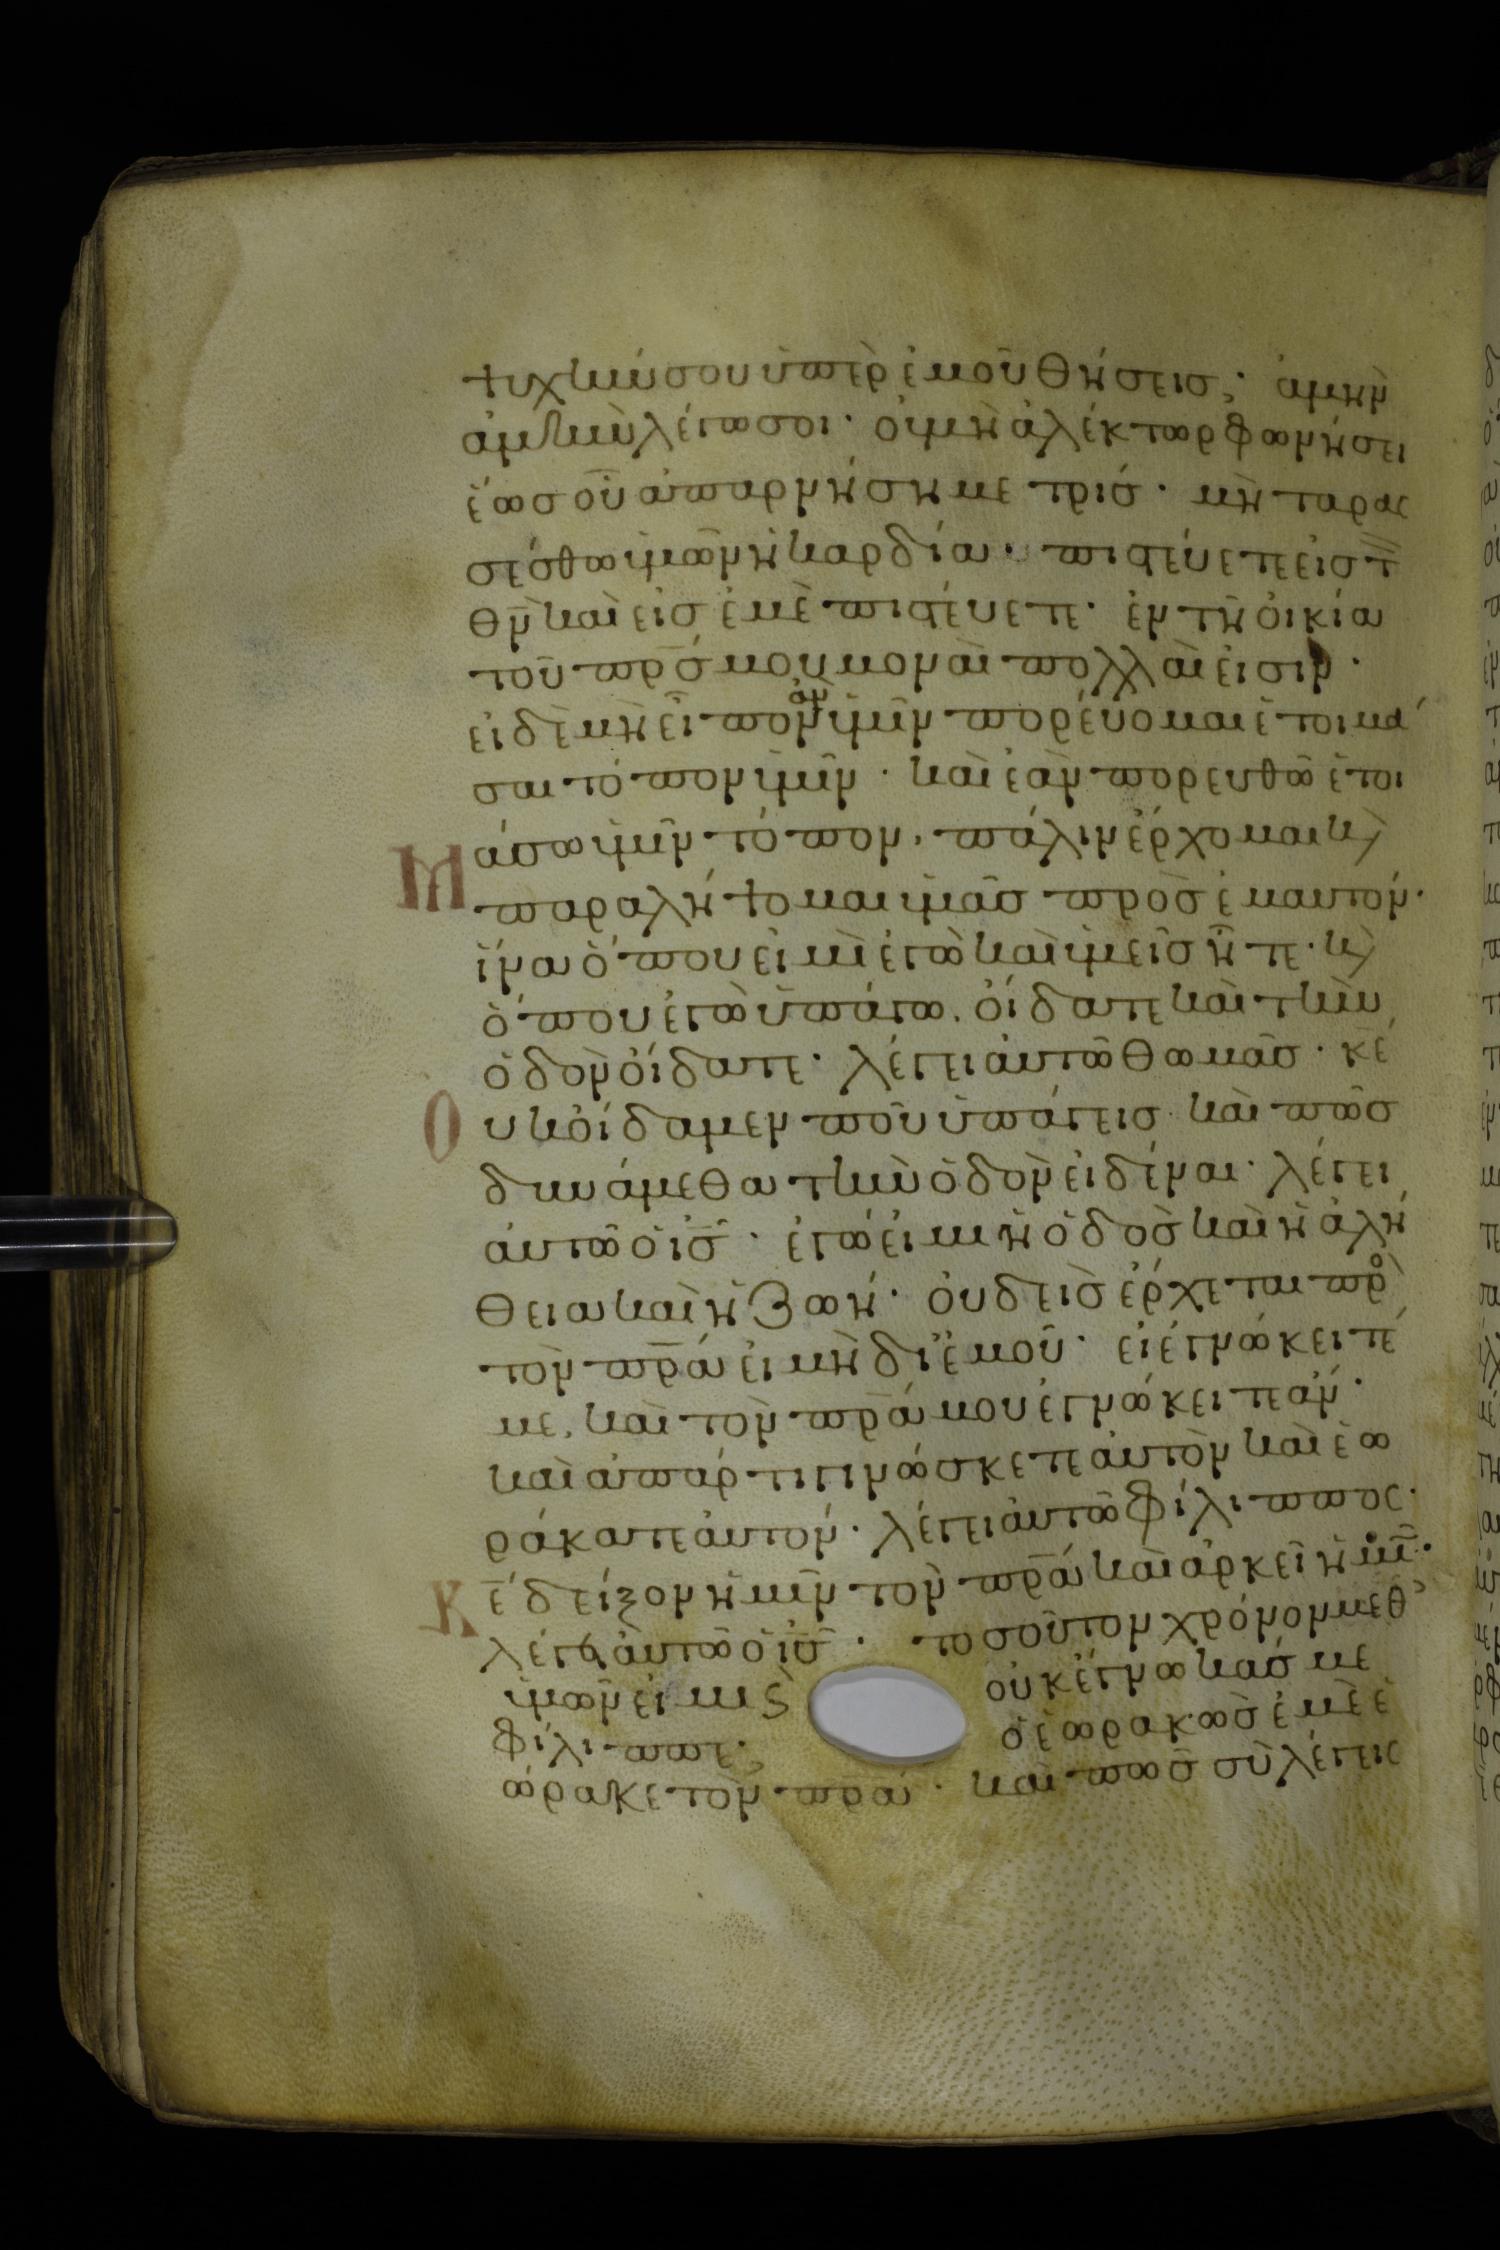 ψυχὴν σου ὑπὲρ ἐμοῦ θήσεις; ἀμὴν
ἀμὴν λέγω σοι· οὐ μὴ ἀλέκτωρ φωνήσει
ἕως οὗ ἀπαρνήσῃ με τρίς. μὴ ταρας
σέσθω ὑμῶν ἡ καρδία· πιστεύετε εἰς τ
θν̄ καὶ εἰς ἐμὲ πιστεύετε. ἐν τῇ οἰκία
τοῦ πρ̄ς μου μοναὶ πολλαὶ εἰσιν·
εἰ δὲ μὴ εἶπον ἂν ὑμῖν πορεύομαι ἑτοιμά
σαι τόπον ὑμῖν· καὶ ἐὰν πορευθῶ ἑτοι
Μ άσω ὑμῖν τόπον, πάλιν ἔρχομαι κ
παραλήψομαι ὑμᾶς πρὸς ἐμαυτόν·
ἵνα ὅπου εἰμὶ ἐγὼ καὶ ὑμεῖς ἦτε· κ
ὅπου ἐγὼ ὑπάγω, οἴδατε καὶ τὴν
ὁδὸν οἴδατε· λέγει αὐτῶ θωμᾶς· κε̄
Ο υκ οἴδαμεν ποῦ ὑπάγεις καὶ πῶς
δυνάμεθα τὴν ὁδὸν εἰδέναι· λέγει
αὐτῶ ὁ ις̄· ἐγώ εἰμι ἡ ὁδὸς καὶ ἡ ἀλή
θεια καὶ ἡ ζωή· οὐδεὶς ἔρχεται πρὸ
τὸν πρ̄α εἰ μὴ δι ἐμοῦ· εἰ ἐγνώκειτέ
με, καὶ τὸν πρ̄α μου ἐγνώκειτε ἄν·
καὶ ἀπάρτι γινώσκετε αὐτὸν καὶ ἑω
ράκατε αὐτόν· λέγει αὐτῶ φίλιππος·
Κ ε̄ δείξον ἡμῖν τὸν πρ̄α καὶ ἀρκεῖ ἡμῖν·
λέγει αὐτῶ ὁ ις̄· τοσοῦτον χρόνον μεθ
ὑμῶν εἰμι κ οὐκ ἔγνωκάς με
φίλιππε; ὁ ἑωρακὼς ἐμὲ ἑ
ώρακε τὸν πρ̄α· καὶ πῶς σὺ λέγεις